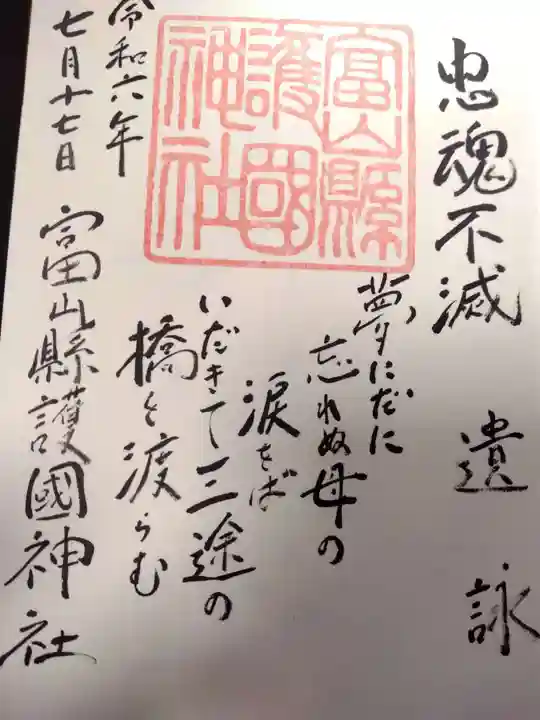 忠魂不滅
遺詠
夢にだに
忘れぬ母の
涙をば
いだきて三途の
橋を渡らむ
富山縣
護國
神社
令和六年
七月十七日
富山縣護國神社